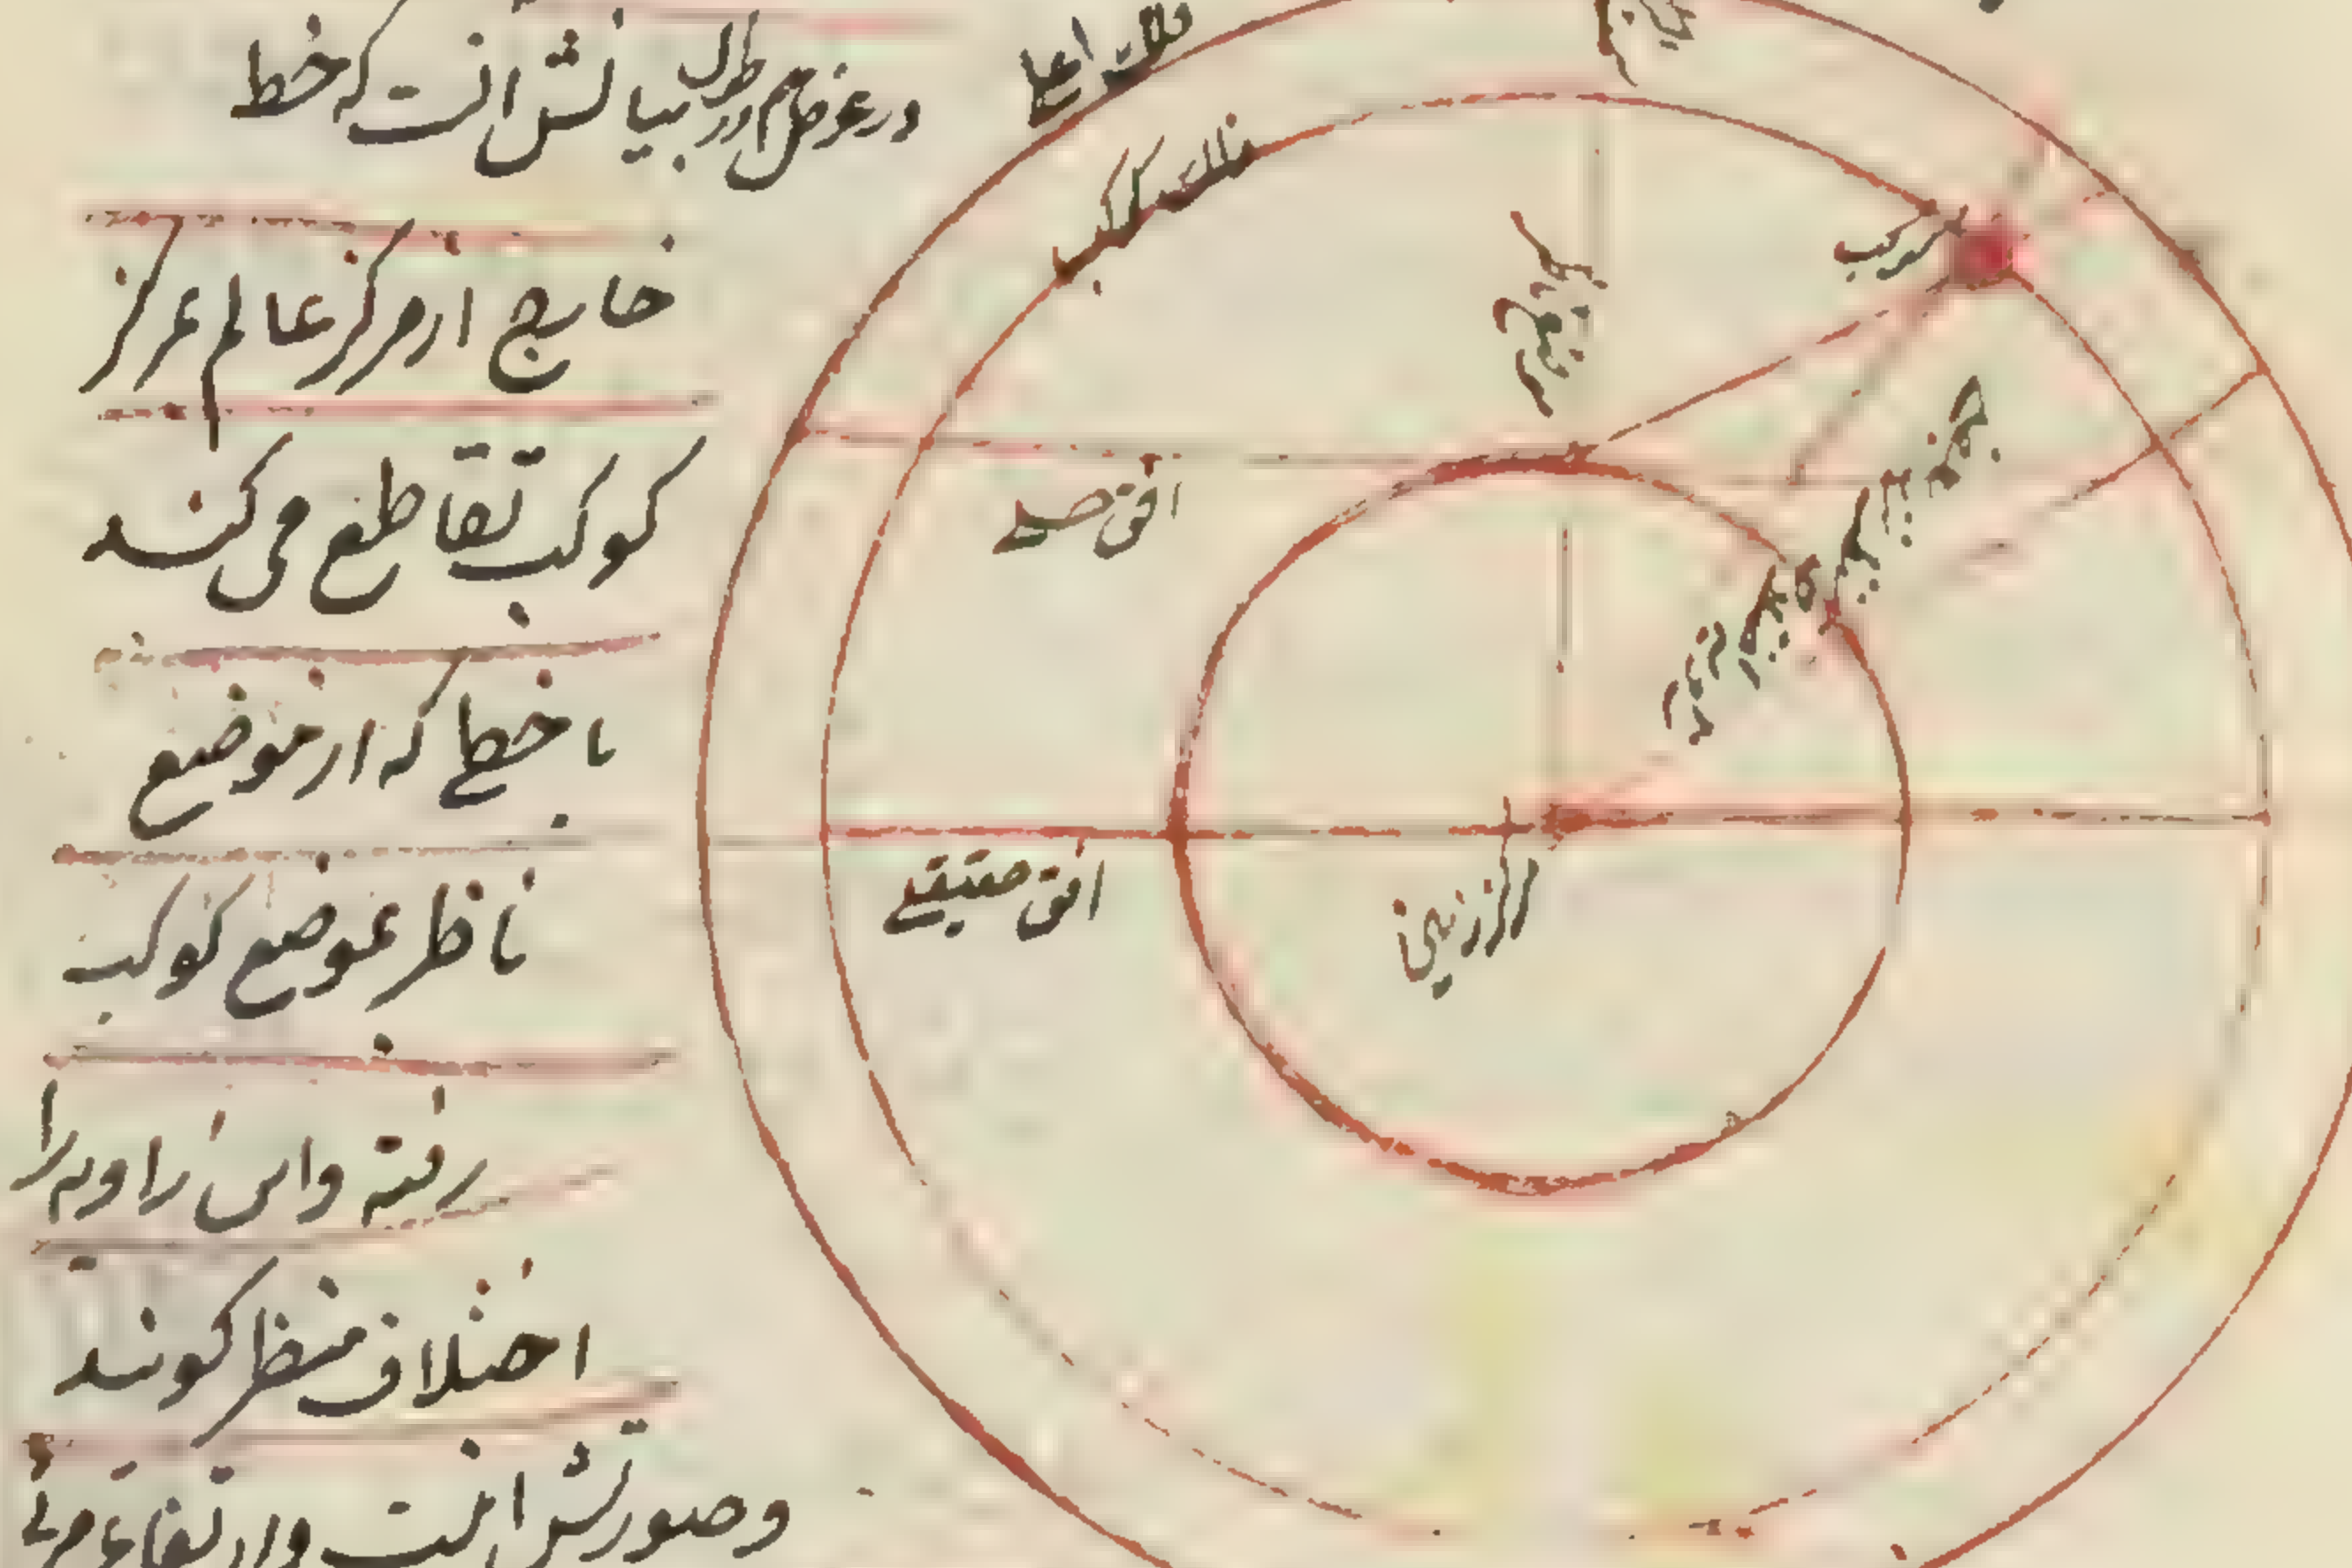 در عرض هم در طول بیانش انست که خط
خارج از مرکز عالم بمرکز
کوکب تقاطع می کند
با خطی که از موضع
ناظر بموضع کوکب
رفته و این زاویه را
اختلاف منظر کویند
و صورتش اینست و ارتفاع مرئی
فلک اعلی
فلک کوکب
کوکب
افق حسی
افق حقیقی
مرکز زمین